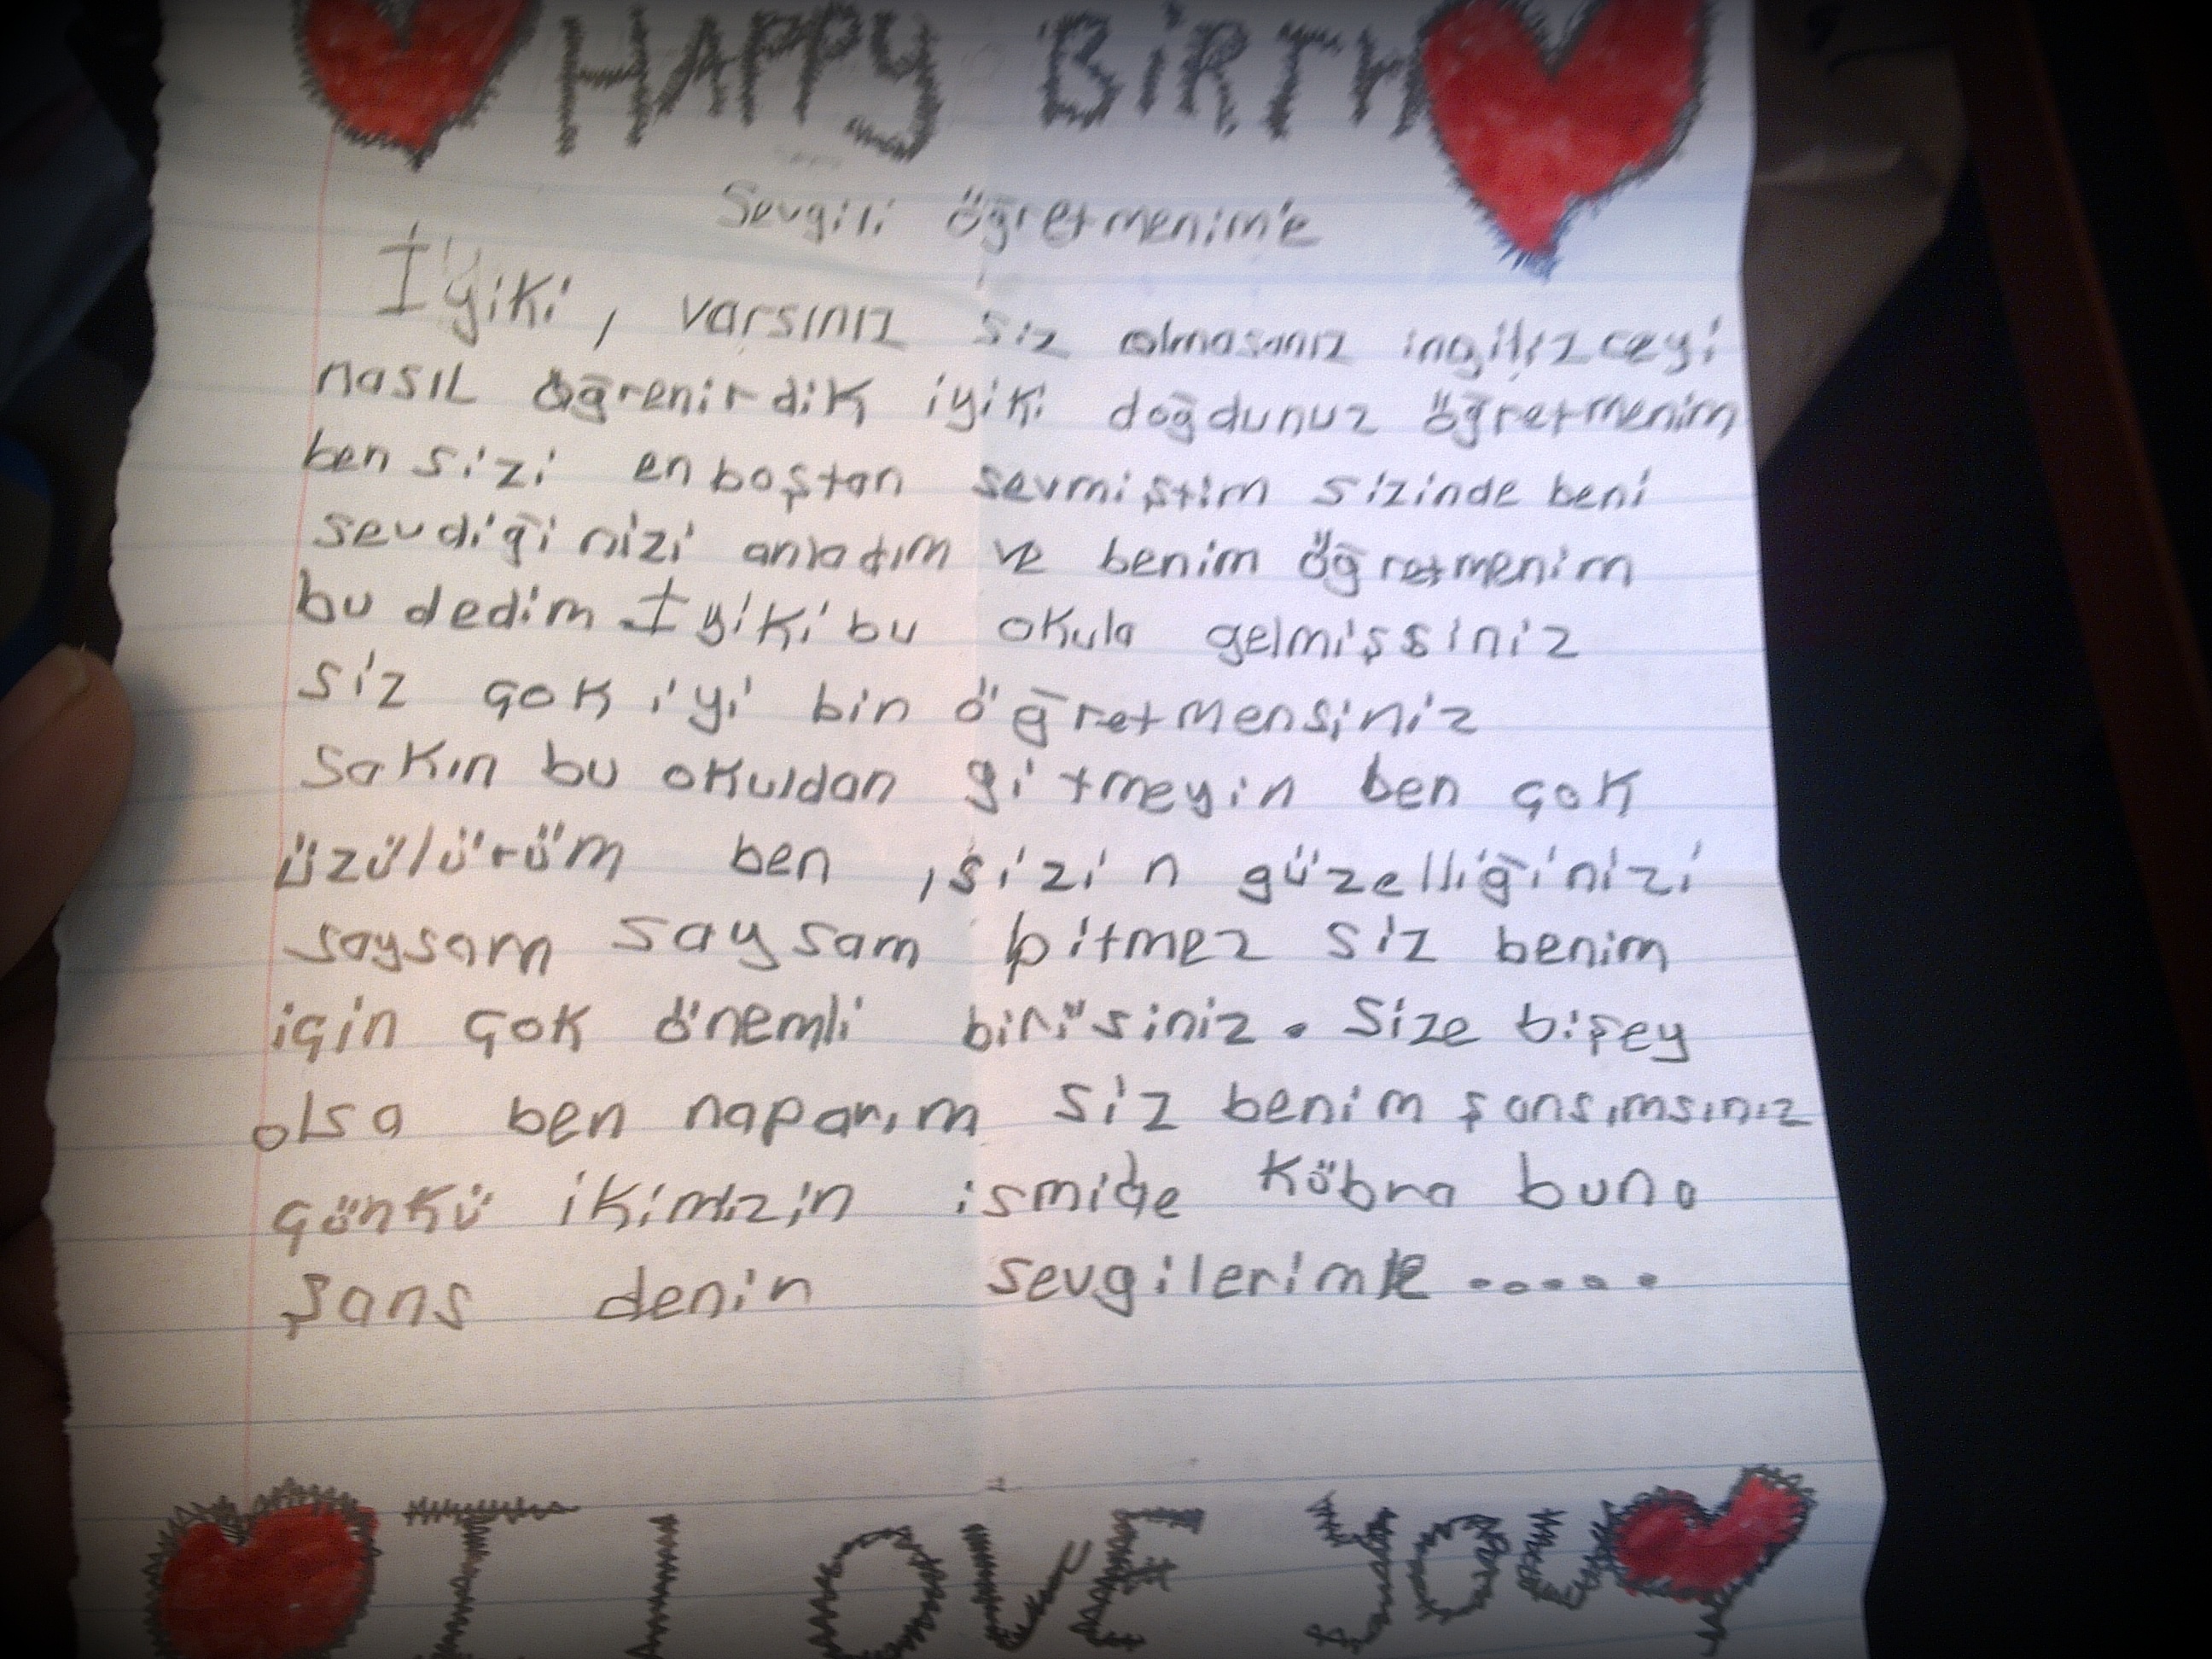 HAPPY BİRTH
Sevgili öğretmenim'e
İyiki, varsınız siz olmasanız ingilizceyi
nasıl öğrenirdik iyiki doğdunuz öğretmenim
ben sizi en boştan sevmiştim sizinde beni
sevdiğinizi anladım ve benim öğretmenim
bu dedim. İyiki bu okula gelmişsiniz
siz çok iyi bir öğretmensiniz
sakın bu okuldan gitmeyin ben çok
üzülürüm ben , sizin güzelliğinizi
saysam saysam bitmez siz benim
için çok önemli birisiniz. Size bişey
olsa ben naparım siz benim şansımsınız
çünkü ikimizin ismide Kübra buna
şans denir sevgilerimle .....
I LOVE YOU